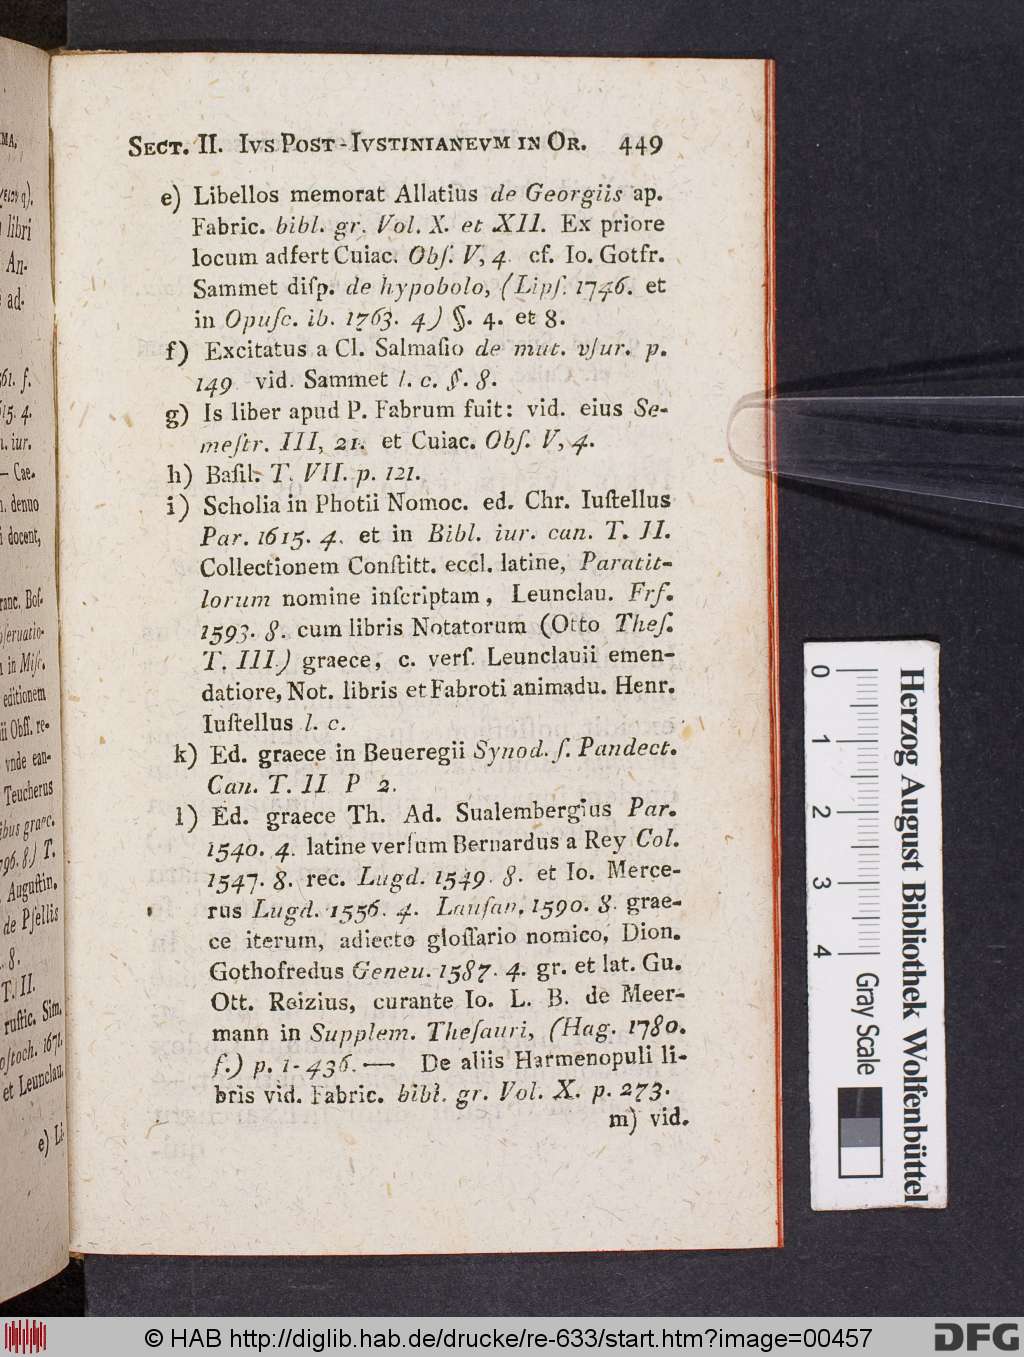 SECT. II. IVS POST-IVSTINIANEVM IN OR. 449
e) Libellos memorat Allatius de Georgiis ap.
Fabric. bibl. gr. Vol. X. et XII. Ex priore
locum adfert Cuiac. Obſ. V, 4. cf. Io. Gotfr.
Sammet diſp. de hypobolo, (Lipſ. 1746. et
in Opuſc. ib. 1763. 4) §. 4. et 8.
f) Excitatus a Cl. Salmaſio de mut. vſur. p.
149 vid. Sammet l. c. §. 8.
g) Is liber apud P. Fabrum fuit: vid. eius Se-
meſtr. III, 21. et Cuiac. Obſ. V, 4.
h) Baſil. T. VII. p. 121.
i) Scholia in Photii Nomoc. ed. Chr. Iuſtellus
Par. 1615. 4. et in Bibl. iur. can. T. II.
Collectionem Conſtitt. eccl. latine, Paratit-
lorum nomine inſcriptam, Leunclau. Frf.
1593. 8. cum libris Notatorum (Otto Theſ.
T. III.) graece, c. verſ. Leunclauii emen-
datiore, Not. libris et Fabroti animadu. Henr.
Iuſtellus l. c.
k) Ed. graece in Beueregii Synod. ſ. Pandect.
Can. T. II P 2.
l) Ed. graece Th. Ad. Sualembergius Par.
1540. 4. latine verſum Bernardus a Rey Col.
1547. 8. rec. Lugd. 1549. 8. et Io. Merce-
rus Lugd. 1556. 4. Lauſan. 1590. 8. grae-
ce iterum, adiecto gloſſario nomico, Dion.
Gothofredus Geneu. 1587. 4. gr. et lat. Gu.
Ott. Reizius, curante Io. L. B. de Meer-
mann in Supplem. Theſauri, (Hag. 1780.
f.) p. 1-436. — De aliis Harmenopuli li-
bris vid. Fabric. bibl. gr. Vol. X. p. 273.
m) vid.
libri
An-
ad-
615. 4.
iur.
— Cae.
denuo
docent,
in Miſc.
editionem
vnde ean-
Teucherus
T.
Auguſtin.
de Pſellis
8.
T. II.
ruſtic. Sim.
1671.
et Leunclau.
e) Li-
0 1 2 3 4
Gray Scale
Herzog August Bibliothek Wolfenbüttel
© HAB http://diglib.hab.de/drucke/re-633/start.htm?image=00457
DFG